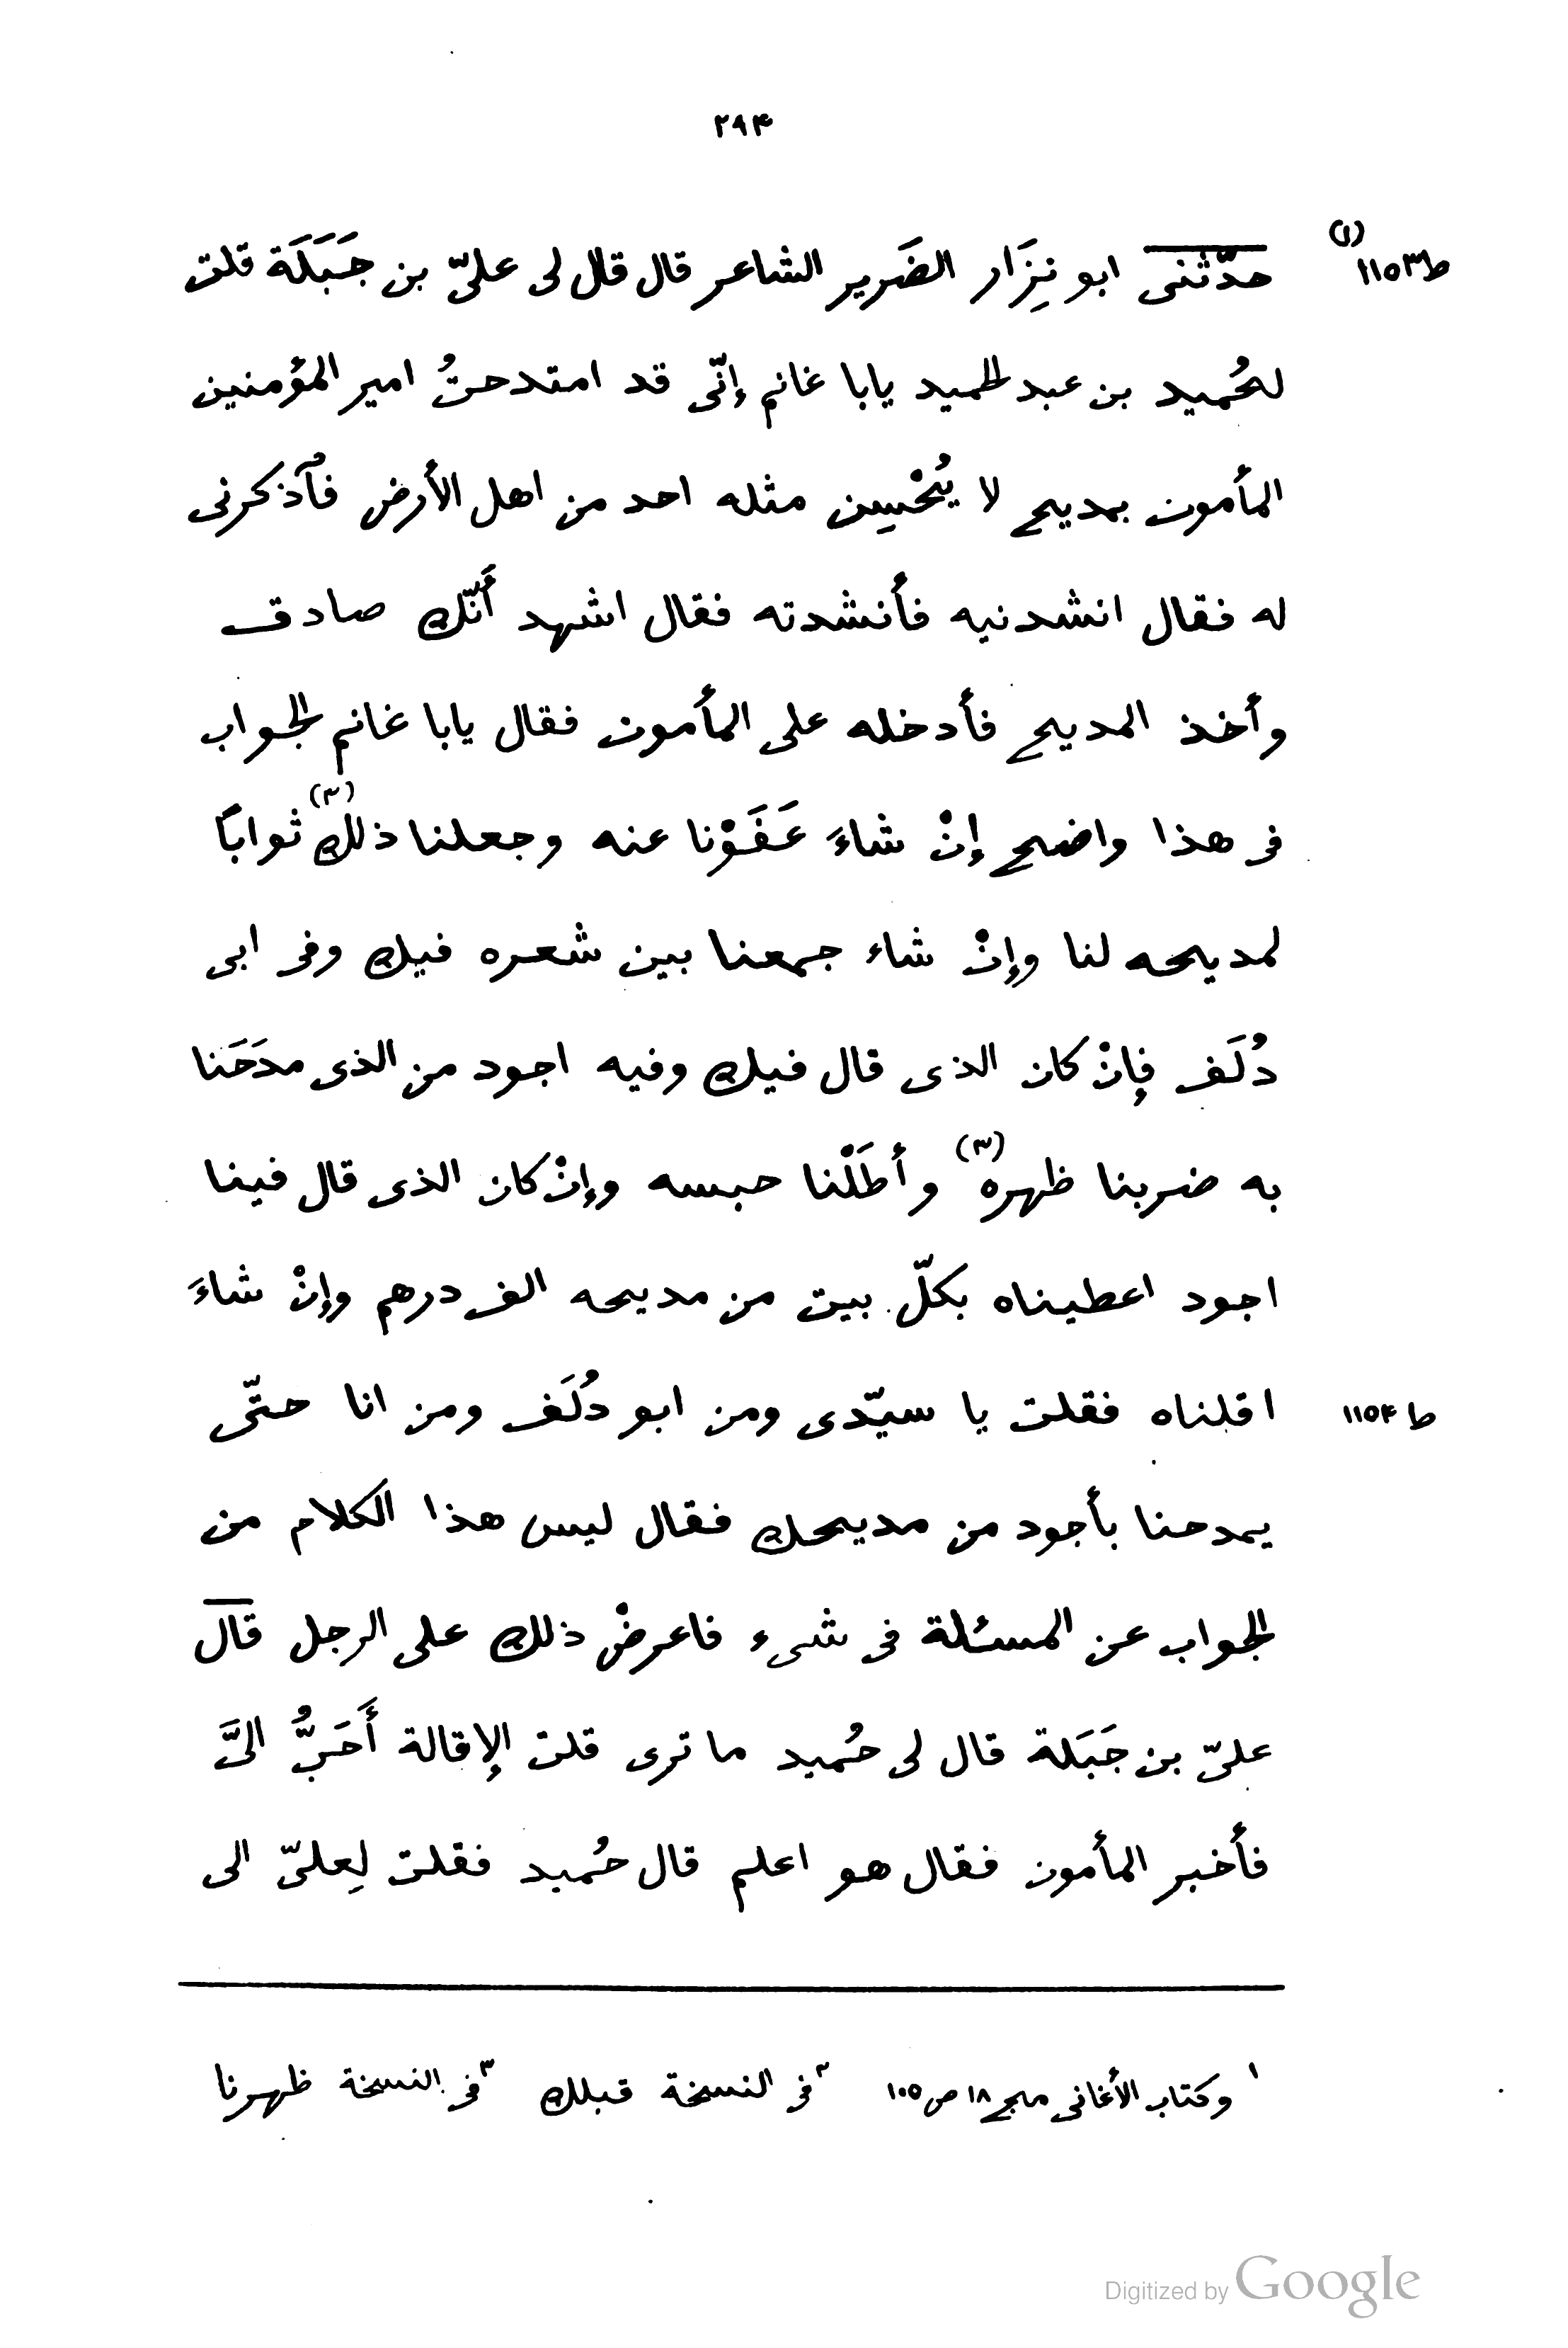 ٢٩۴
ط١١٥٣ (١)
حدّثنى ابو نِزَار الضَرير الشاعر قال قال لى علىّ بن جَبَلَة قلت
لحُميد بن عبد الحميد يابا غانم إنّى قد امتدحتُ امير المؤمنين
المأمون بمديح لا يُحْسِن مثله احد من اهل الأرض فأذكرنى
له فقال انشدنيه فأنشدته فقال اشهد أَنّك صادق
وأخذ المديح فأدخله على المأمون فقال يابا غانم الجواب
فى هذا واضح إنْ شاءَ عَفَوْنا عنه وجعلنا ذلك(٢) ثوابًا
لمديحه لنا وإنْ شاء جمعنا بين شعره فيك وفى ابى
دُلَف فإنْ كان الذى قال فيك وفيه اجود من الذى مدَحَنا
به ضربنا ظهره(٣) وأطَلْنا حبسه وإنْ كان الذى قال فينا
اجود اعطيناه بكلّ بيت من مديحه الف درهم وإنْ شاءَ
اقلناه فقلت يا سيّدى ومن ابو دُلَف ومن انا حتّى
ط ١١٥۴
يمدحنا بأجود من مديحك فقال ليس هذا الكلام من
الجواب عن المسئلة فى شىء فاعرضْ ذلك على الرجل قال
علىّ بن جَبَلة قال لى حُميد ما ترى قلت الإقالة أَحَبُّ الىَّ
فأخبر المأمون فقال هو اعلم قال حُميد فقلت لِعلىّ الى
١ وكتاب الأغانى مج ١٨ ص ١٠٥ ٢ فى النسخة قبلك ٣ فى النسخة ظهرنا
Digitized by Google